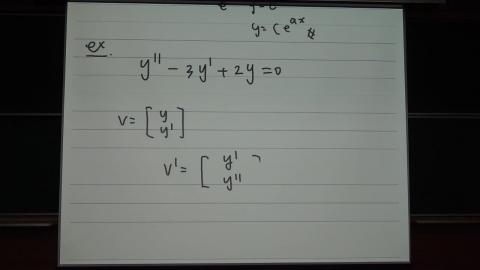 y = Ce^{ax}
ex.
y'' - 3y' + 2y = 0
v = [ y
y' ]
v' = [ y' ]
y''